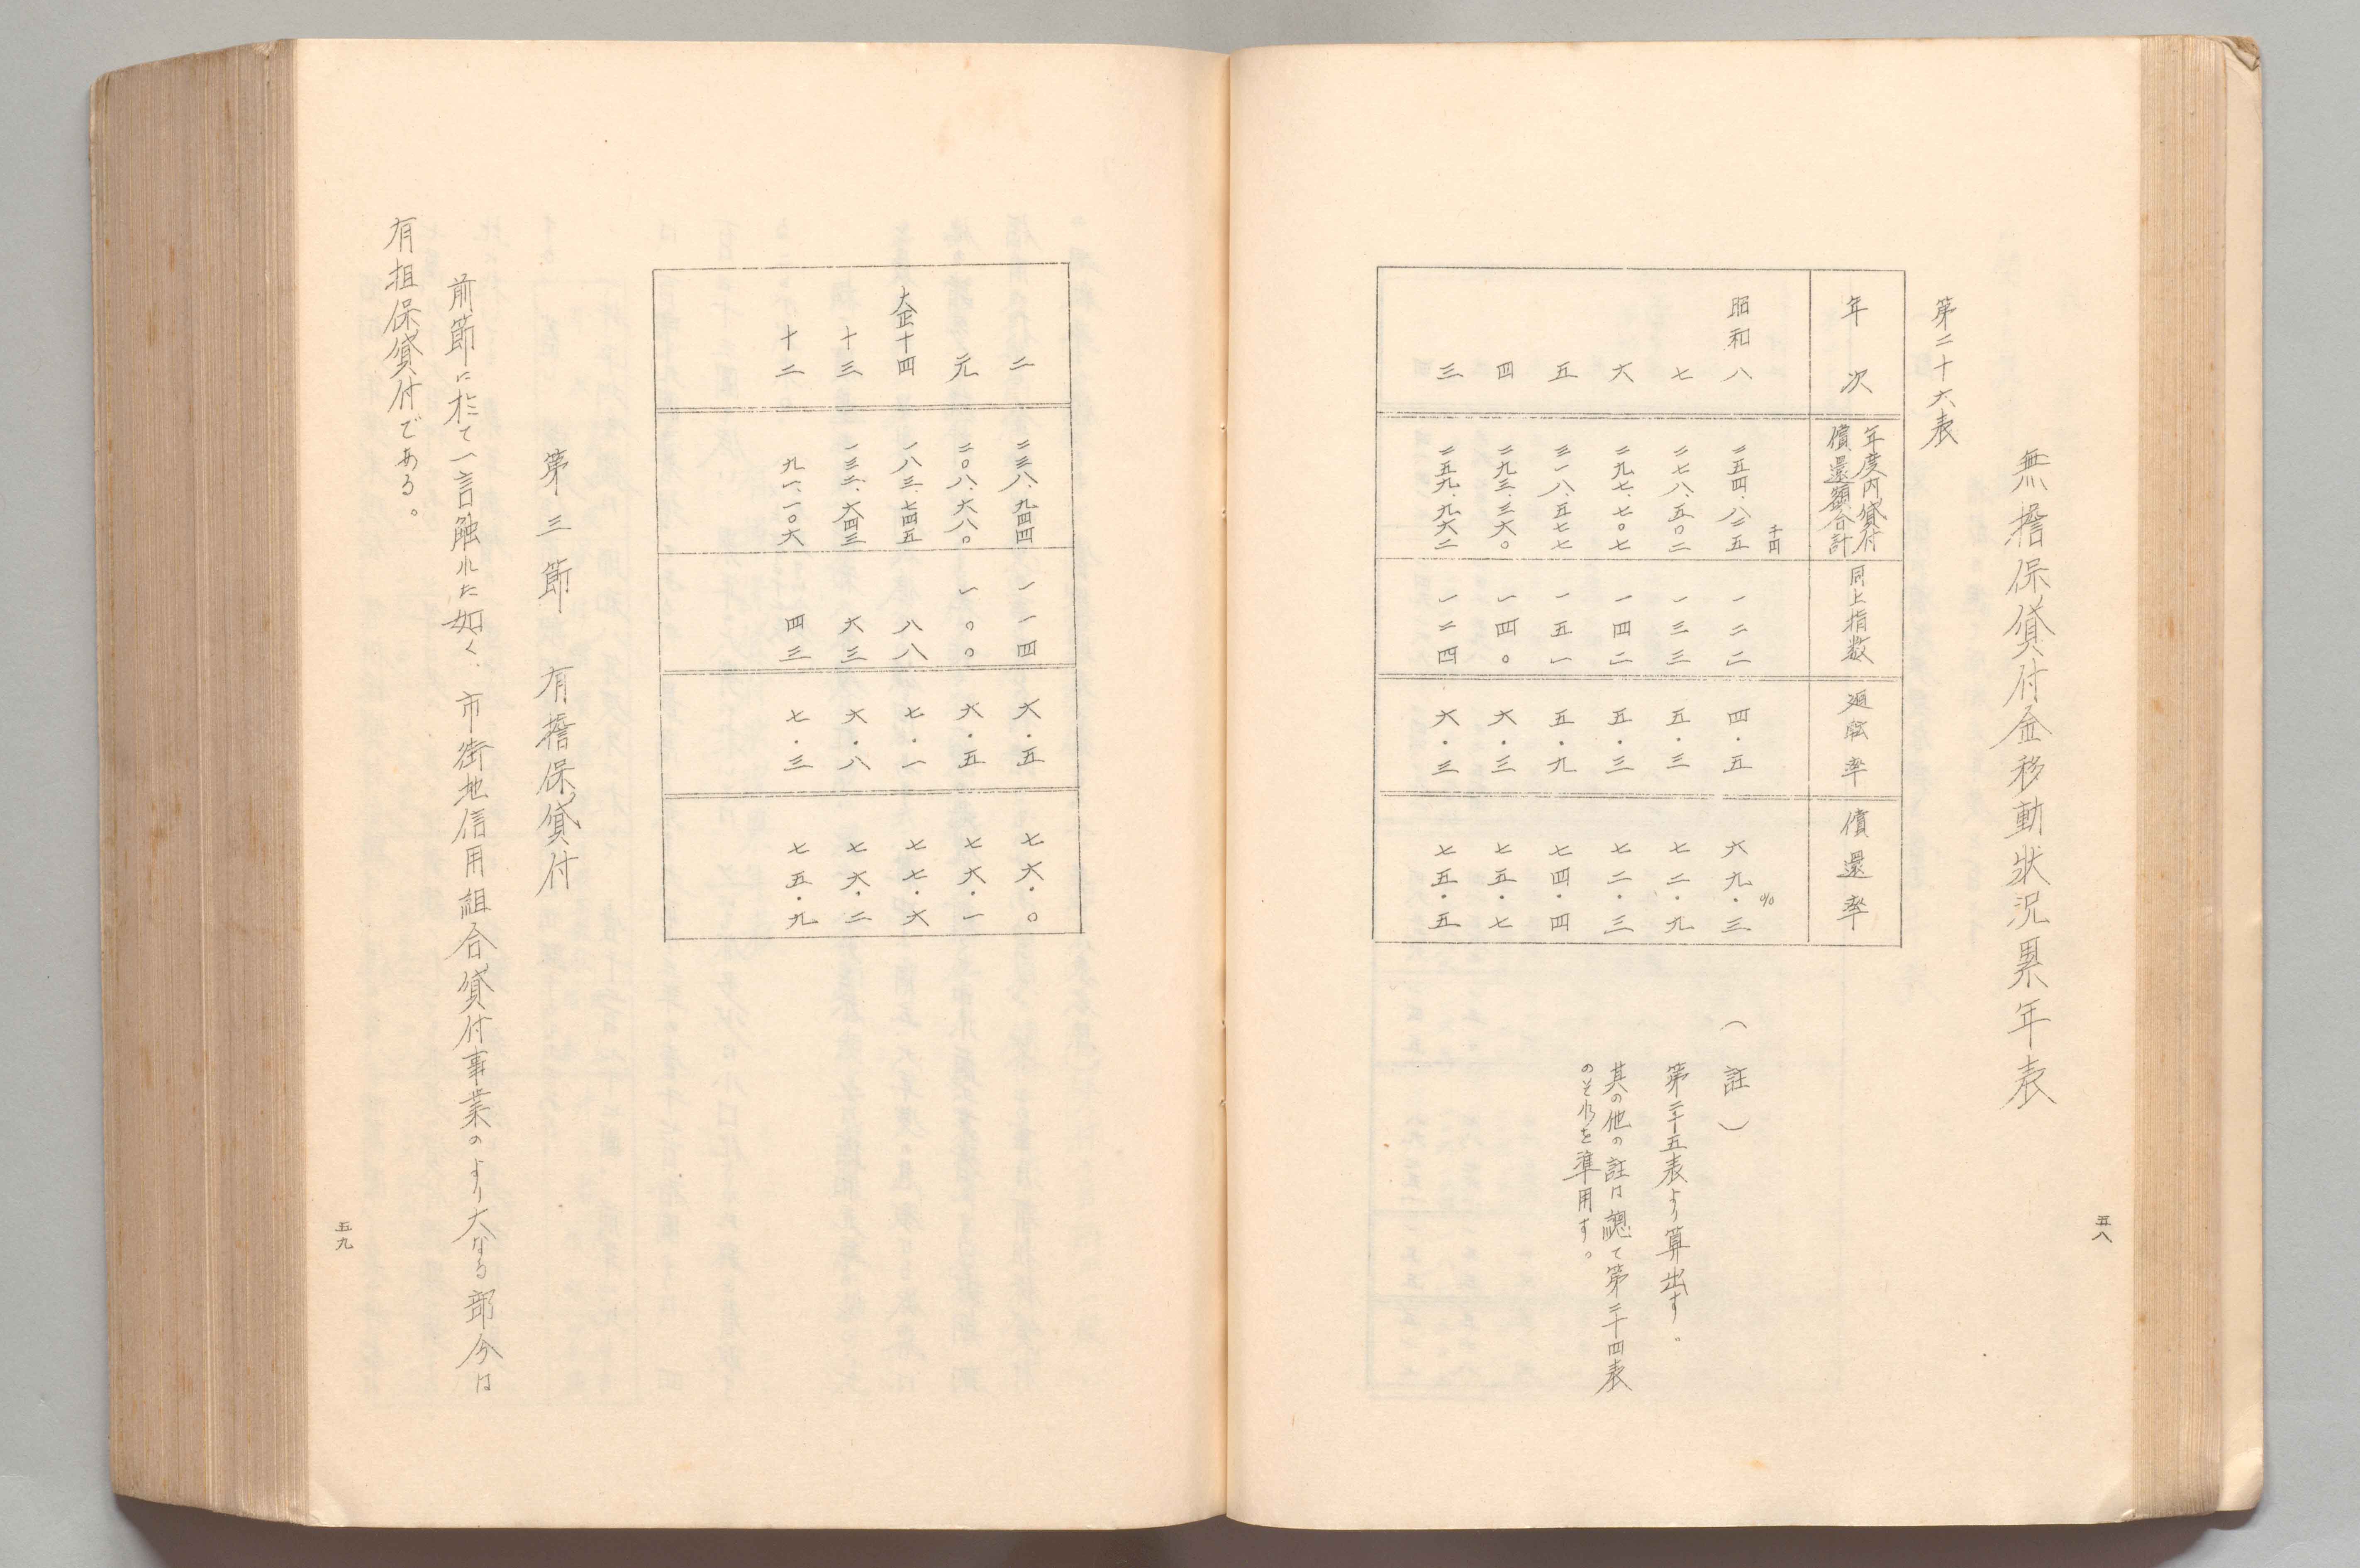 無擔保貸付金移動狀況累年表
第二十六表
年次
年度內貸付償還額合計
同上指数
廻転率
償還率
千円
%
昭和八 二五四、八二五 一二二 四・五 六九・三
七 二七八、五〇二 一三三 五・三 七二・九
六 二九七、七〇七 一四二 五・三 七二・三
五 三一八、五七七 一五一 五・九 七四・四
四 二九三、三六〇 一四〇 六・三 七五・七
三 二五九、九六二 一二四 六・三 七五・五
(註)
第二十五表より算出す。
其の他の註は總て第二十四表
のそれを準用す。
五八
二 二三八、九四四 一一四 六・五 七六・〇
元 二〇八、六八〇 一〇〇 六・五 七六・一
大正十四 一八三、七四五 八八 七・一 七七・六
十三 一三二、六四三 六三 六・八 七六・二
十二 九一、一〇六 四三 七・三 七五・九
第三節 有擔保貸付
前節に於て一言触れた如く、市街地信用組合貸付事業のより大なる部分は
有担保貸付である。
五九